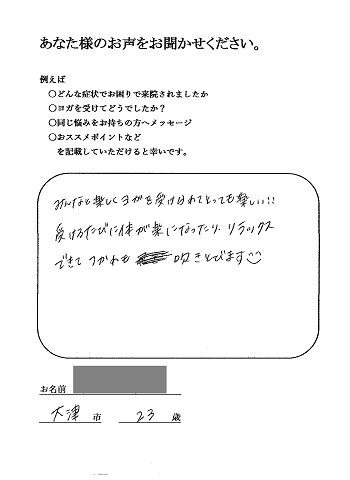 あなた様のお声をお聞かせください。
例えば
○どんな症状でお困りで来院されましたか
○ヨガを受けてどうでしたか？
○同じ悩みをお持ちの方へメッセージ
○おススメポイントなど
を記載していただけると幸いです。
みんなと楽しくヨガを受けられてとっても楽しい!!
受けるたびに体が楽になったり、リラックス
できて つかれも 吹きとびます
お名前
大津 市 23 歳